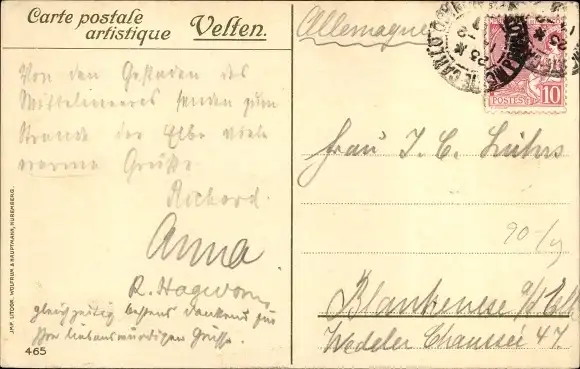 Carte postale
artistique
Velten.
Von den Gestaden des
Mittelmeeres senden zum
Strande der Elbe viele
warme Grüße
Richard.
Anna
R. Hagworm,
gleichzeitig bestens dankend für
Ihre liebenswürdigen Grüsse.
465
IMP. LITOGR. WOLFRUM & HAUPTMANN, NUREMBERG.
Allemagne
MONTE-CARLO
POSTES
10
Frau J. C. Lührs
90-/y
Blankenese a/d Elbe
Wedeler Chaussée 47.